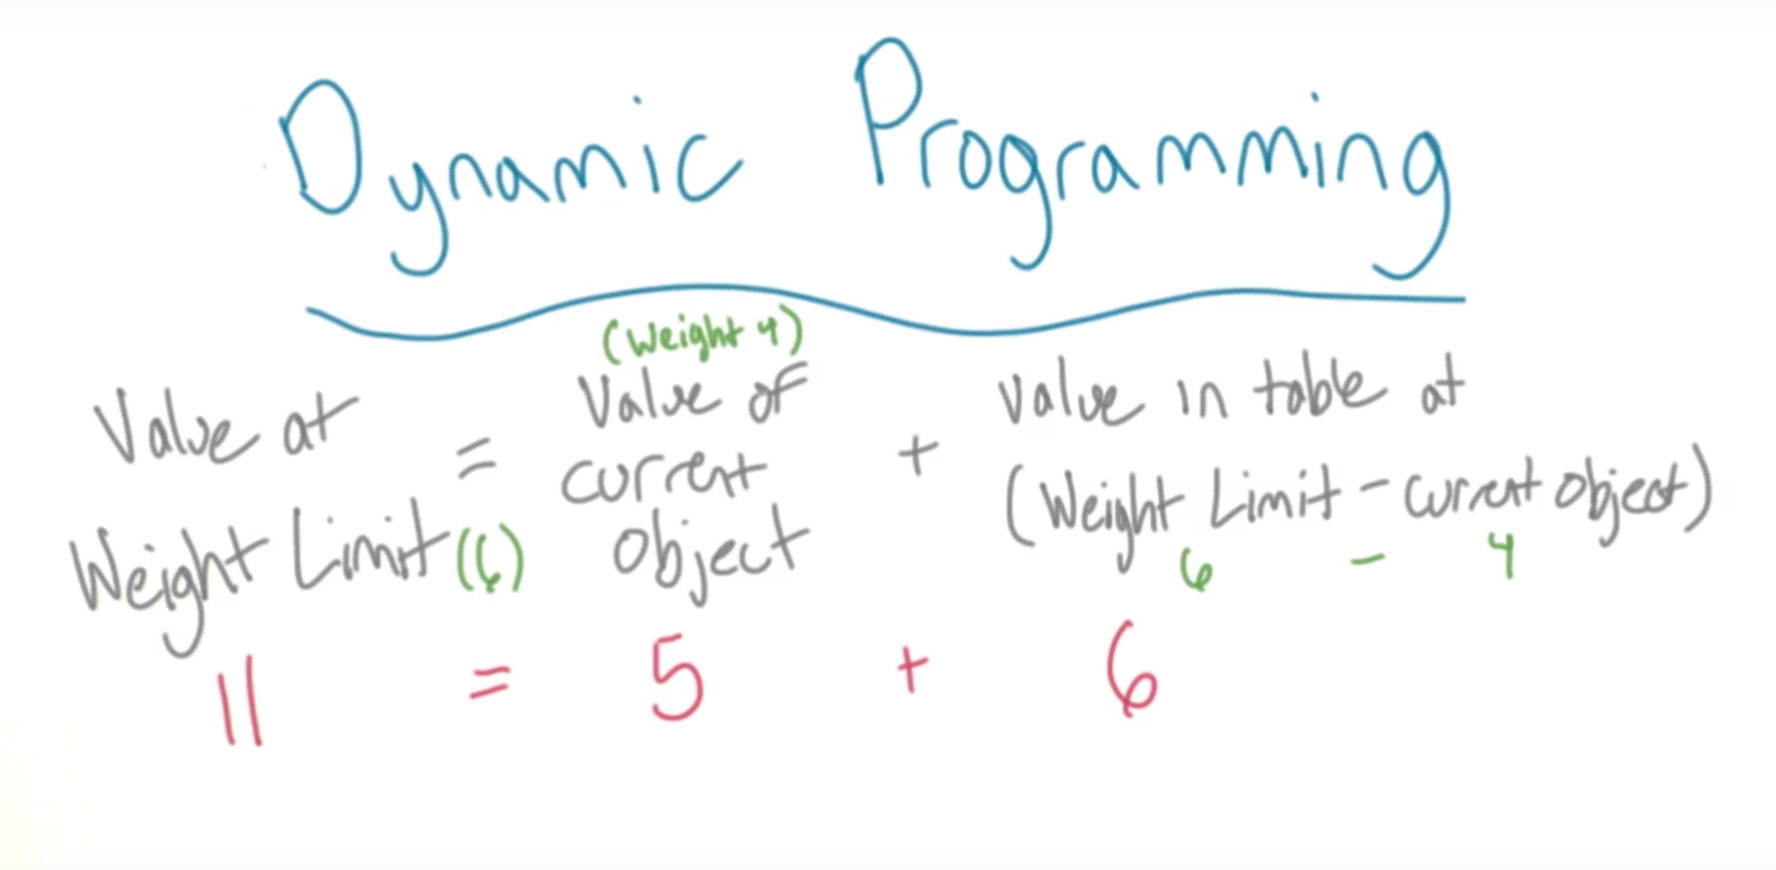 Dynamic Programming
(Weight 4)
Value at
Weight Limit (6)
=
Value of
current
object
+
Value in table at
(Weight Limit - current object)
6 - 4
11 = 5 + 6